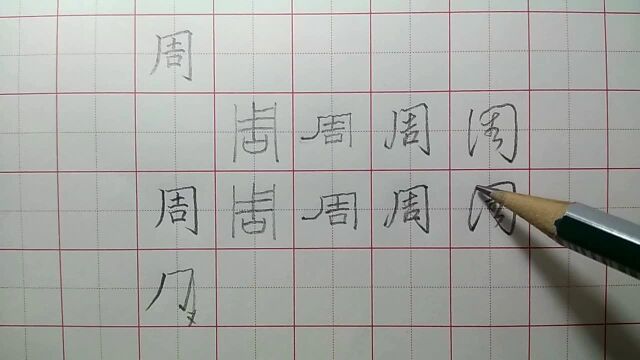 周
周 周 周 周
周 周 周 周 周